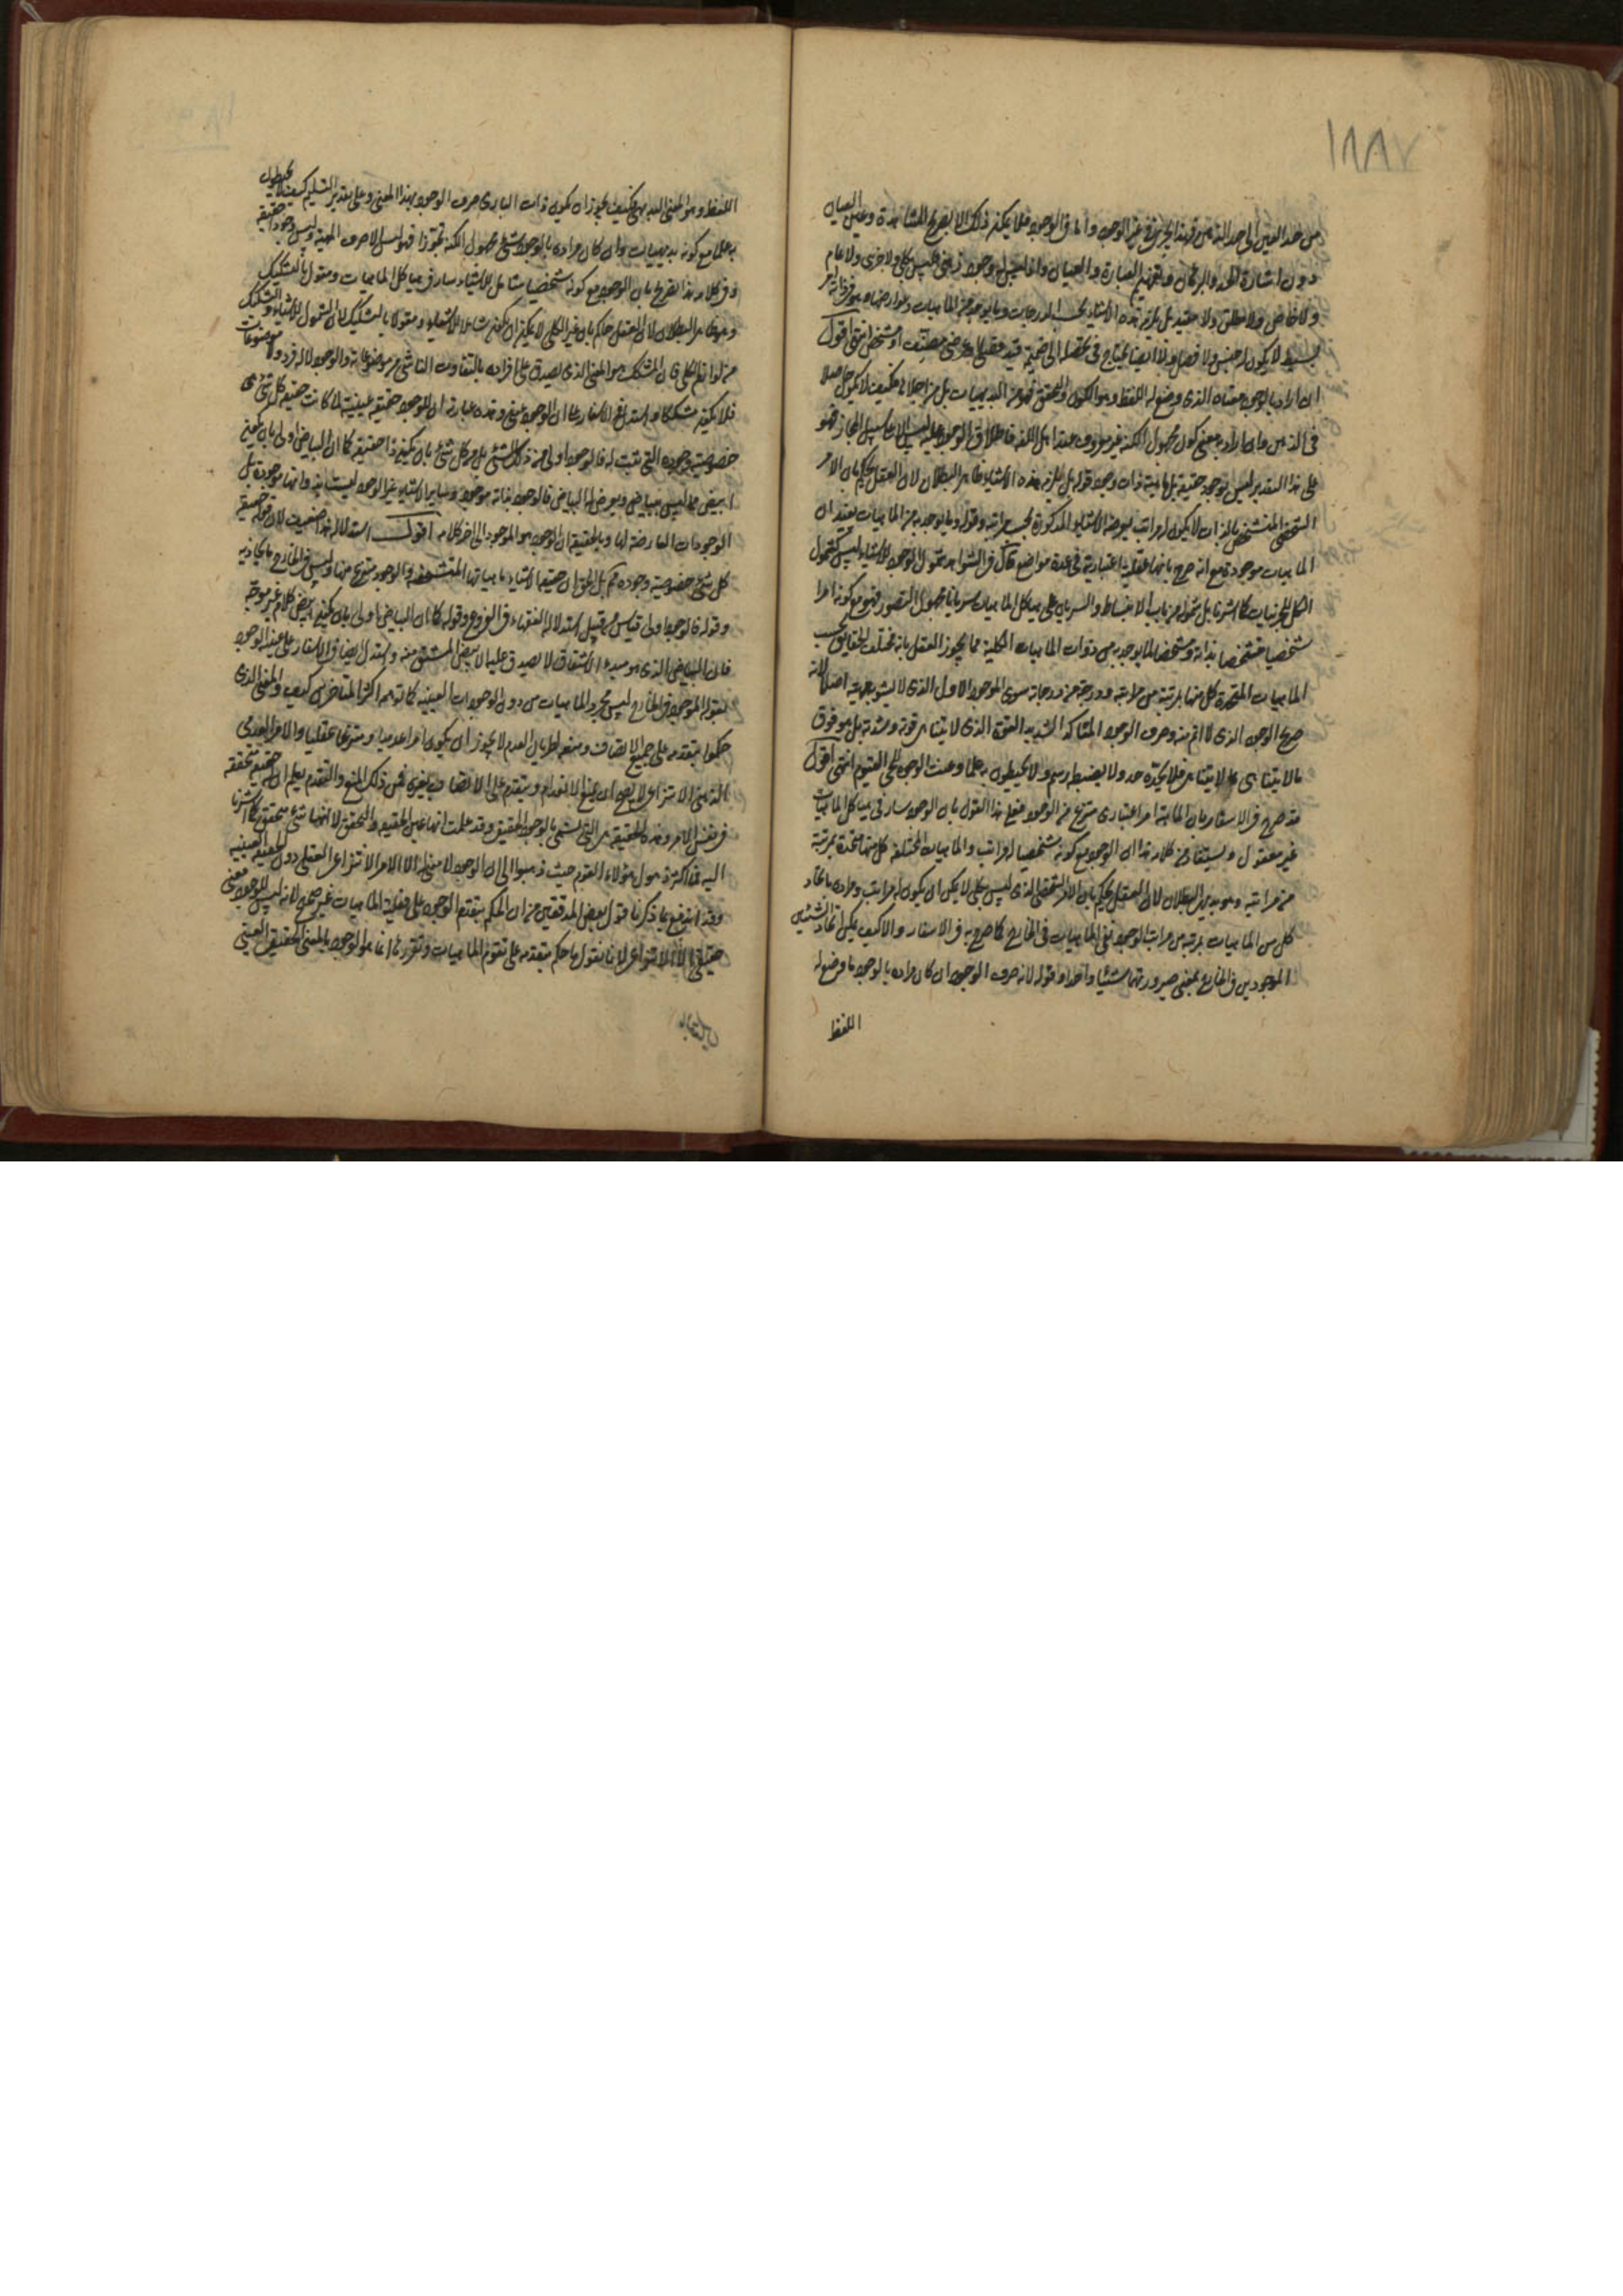 ١٨٨٧
من حد العين الى حد الذهن فهذا يجري في غير الوجود واما في الوجود فلا يمكن ذلك الا بصريح المشاهدة وعين العيان
دون اشارة الحد والبرهان وتفهيم العبارة والبيان واذ ليس له وجود ذهني فليس بكلي ولا جزئي ولا عام
ولا خاص ولا مطلق ولا مقيد بل يلزمه هذه الاشياء بحسب الدرجات وما يوجد به من الماهيات وعوارضها وهو في ذاته امر
بسيط لا يكون له جنس ولا فصل ولا ايضا يحتاج في تحصله الى ضميمة قيد فصلي او عرضي مصنف او مشخص انتهى اقول
ان اراد بالوجود معناه الذي وضع له اللفظ وهو الكون والتحقق فهو من البديهيات بل من اجلاها فكيف لا يكون حاصلا
في الذهن وان اراد به معنى كون مجهول الكنه غير معروف عند اهل اللغة فاطلاق الوجود عليه ليس الا على سبيل المجاز فهو
على هذا التقدير ليس بوجود حقيقة بل ماهية ذات وجود وقوله بل يلزمه هذه الاشياء ظاهر البطلان لان العقل يحكم بان الامر
الشخصي المتشخص بالذات لا يكون له مراتب يعرضه الاشياء المذكورة بحسب مراتبه وقوله وما يوجد به من الماهيات يفيد ان
الماهيات موجودة مع انه صرح بانها عقلية اعتبارية في عدة مواضع قال في الشواهد شمول الوجود للاشياء ليس كشمول
الكلي للجزئيات كما اشرنا بل شموله من باب الانبساط والسريان على هياكل الماهيات سريانا مجهول التصور فهو مع كونه امرا
شخصيا متشخصا بذاته ومشخصا لما يوجد به من ذوات الماهيات الكلية مما يجوز العقل بانه مختلف الحقائق بحسب
الماهيات المتحدة كل منها بمرتبة من مراتبه ودرجة من درجاته سوى الموجود الاول الذي لا يشوبه ماهية اصلا لانه
صريح الوجود الذي لا اتم منه وصرف الوجود المتاكد الشديد القوة الذي لا يتناهى قوته وشدته بل هو فوق
ما لا يتناهى بما لا يتناهى فلا يحده حد ولا يضبطه رسم ولا يحيطون به علما وعنت الوجوه للحي القيوم انتهى اقول
قد صرح في الاسفار بان الماهية امر اعتباري منتزع من الوجود فعلى هذا القول بان الوجود سار في هياكل الماهيات
غير معقول ويستفاد من كلامه هذا ان الوجود مع كونه شخصيا له مراتب والماهيات المختلفة كل منها متحدة بمرتبة
من مراتبه وهو بديهي البطلان لان العقل يحكم بان الامر الشخصي الذي ليس بكلي لا يمكن ان يكون له مراتب ومراده باتحاد
كل من الماهيات بمرتبة من مراتب الوجود نفي الماهيات في الخارج كما صرح به في الاسفار والا كيف يمكن اتحاد الشيئين
الموجودين في الخارج بمعنى صيرورتهما شيئا واحدا وقوله لانه صرف الوجود ان كان مراده بالوجود ما وضع له
اللفظ
اللفظ وهو المعنى البديهي فكيف يجوز ان يكون ذات الباري صرف الوجود بهذا المعنى وعلى تقدير التسليم كيف لا يحيطون
به علما مع كونه بديهيات وان كان مراده بالوجود شيء مجهول الكنه تجوزا فهو ليس الا صرف الماهية وليس وجودا حقيقة
وفي كلامه هذا تصريح بان الوجود مع كونه شخصيا شامل للاشياء سار في هياكل الماهيات ومقول بالتشكيك
وهو ظاهر البطلان لان العقل حاكم بان غير الكلي لا يمكن ان يكون شاملا للاشياء ومقولا بالتشكيك لان الشمول للاشياء والتشكيك
من لوازم الكلي فان المشكك هو المعنى الذي يصدق على افراده بالتفاوت الناشي من موضوعاته والوجود لا له فرد ولا موضوعات
فلا يكون مشككا واستدل في الاسفار على ان الوجود عيني وهذه عبارته ان للوجود حقيقة عينية لما كانت حقيقة كل شيء هي
خصوصية وجوده التي تثبت له فالوجود اولى من ذلك الشيء بل من كل شيء بان يكون ذا حقيقة كما ان البياض اولى بان يكون
ابيض مما ليس ببياض ويعرض له البياض فالوجود بذاته موجود وسائر الاشياء غير الوجود ليست بذواتها موجودة بل
الوجودات العارضة لها وبالحقيقة ان الوجود هو الموجود الى اخر كلامه اقول استدلاله هذا ضعيف لان قوله حقيقة
كل شيء خصوصية وجوده مم بل الحق ان حقيقة الاشياء ماهياتها المتشخصة والوجود منتزع منها وليس في الخارج ما يحاذيه
وقوله فالوجود اولى قياس من قبيل استدلال الفقهاء في الفروع وقوله كما ان البياض اولى بان يكون ابيض كلام غير موجه
فان البياض الذي هو مبدء الاشتقاق لا يصدق عليه الابيض المشتق منه واستدل ايضا في الاسفار على عينية الوجود
بقوله الموجود في الخارج ليس مجرد الماهيات من دون الوجودات العينية كما توهم اكثر المتاخرين كيف والمعنى الذي
حكموا بتقدمه على جميع الاتصاف ومنعه لطريان العدم لا يجوز ان يكون امرا عدميا ومنتزعا عقليا والامر العدمي
الذهني الانتزاعي لا يصح ان يمنع الانعدام ويتقدم على الاتصاف بغيره فمن ذلك المنع والتقدم يعلم ان له حقيقة متحققة
في نفس الامر وهذه الحقيقة هي التي تسمى بالوجود الحقيقي وقد علمت انها عين الحقيقة والتحقق لا انها شيء متحقق كما اشرنا
اليه فما اكثر ذهول هؤلاء القوم حيث ذهبوا الى ان الوجود لا معنى له الا الامر الانتزاعي العقلي دون الحقيقة العينية
وقد اندفع بما ذكرنا قول بعض المدققين من ان الحكم بتقدم الوجود على فعلية الماهيات غير صحيح لانه ليس للوجود معنى
حقيقي الا الانتزاعي لانا نقول ما حكم بتقدمه على تقوم الماهيات وتقررها انما هو الوجود بالمعنى الحقيقي العيني